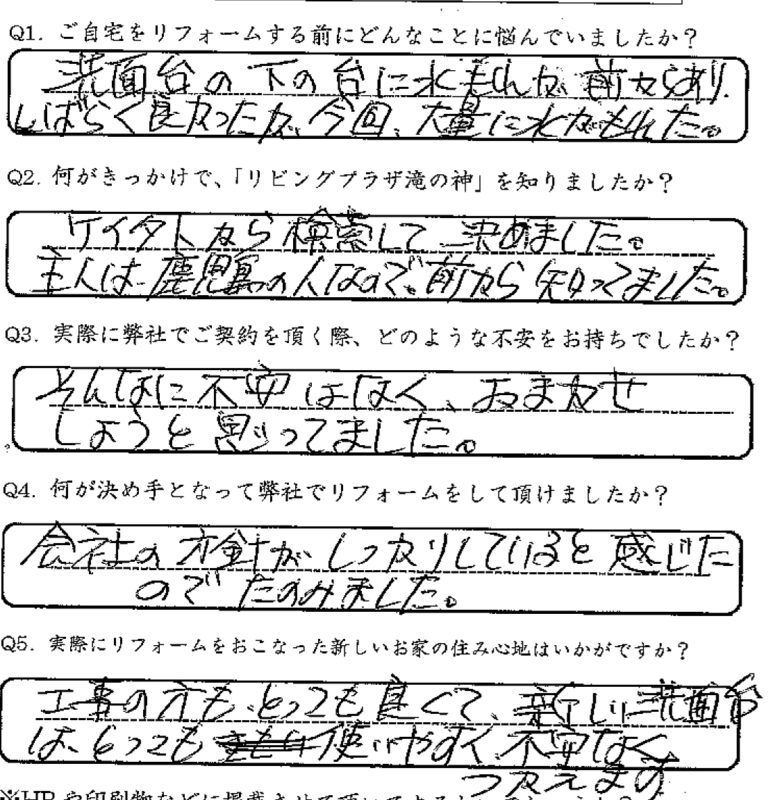 Q1. ご自宅をリフォームする前にどんなことに悩んでいましたか？
洗面台の下の台に水もれが前からあり、
しばらく良かったが、今回、大量に水がもれた。
Q2. 何がきっかけで、「リビングプラザ滝の神」を知りましたか？
ケイタイから検索して決めました。
主人は鹿児島の人なので、前から知ってました。
Q3. 実際に弊社でご契約を頂く際、どのような不安をお持ちでしたか？
そんなに不安はなく、おまかせ
しようと思ってました。
Q4. 何が決め手となって弊社でリフォームをして頂けましたか？
会社の方針がしっかりしていると感じた
のでたのみました。
Q5. 実際にリフォームをおこなった新しいお家の住み心地はいかがですか？
工事の方も、とっても良くて、新しい洗面台
は、とっても使いやすく、不安なく
つかえます